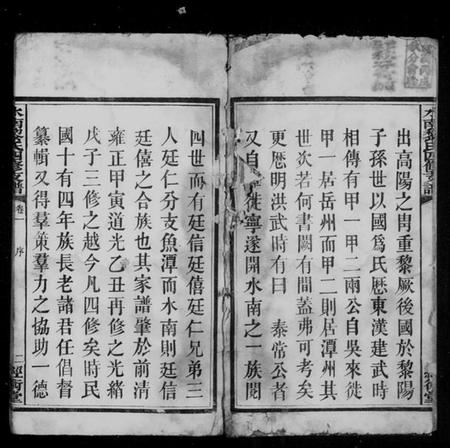 出高陽之胄重黎厥後國於黎陽
子孫世以國爲氏歷東漢建武時
相傳有甲一甲二兩公自吳來徙
甲一居岳州而甲二則居潭州其
世次若何書闕有間蓋弗可考矣
更歷明洪武時有曰 泰常公者
又自 徙寧遂開水南之一族閱
四世而有廷信廷僖廷仁兄弟三
人廷仁分支魚潭而水南則廷信
廷僖之合族也其家譜肇於前清
雍正甲寅道光乙丑再修之光緒
戊子三修之越今凡四修矣時民
國十有四年族長老諸君任倡督
纂輯又得羣策羣力之協助一德
水南黎氏四修支譜
卷一
序
二
經術堂